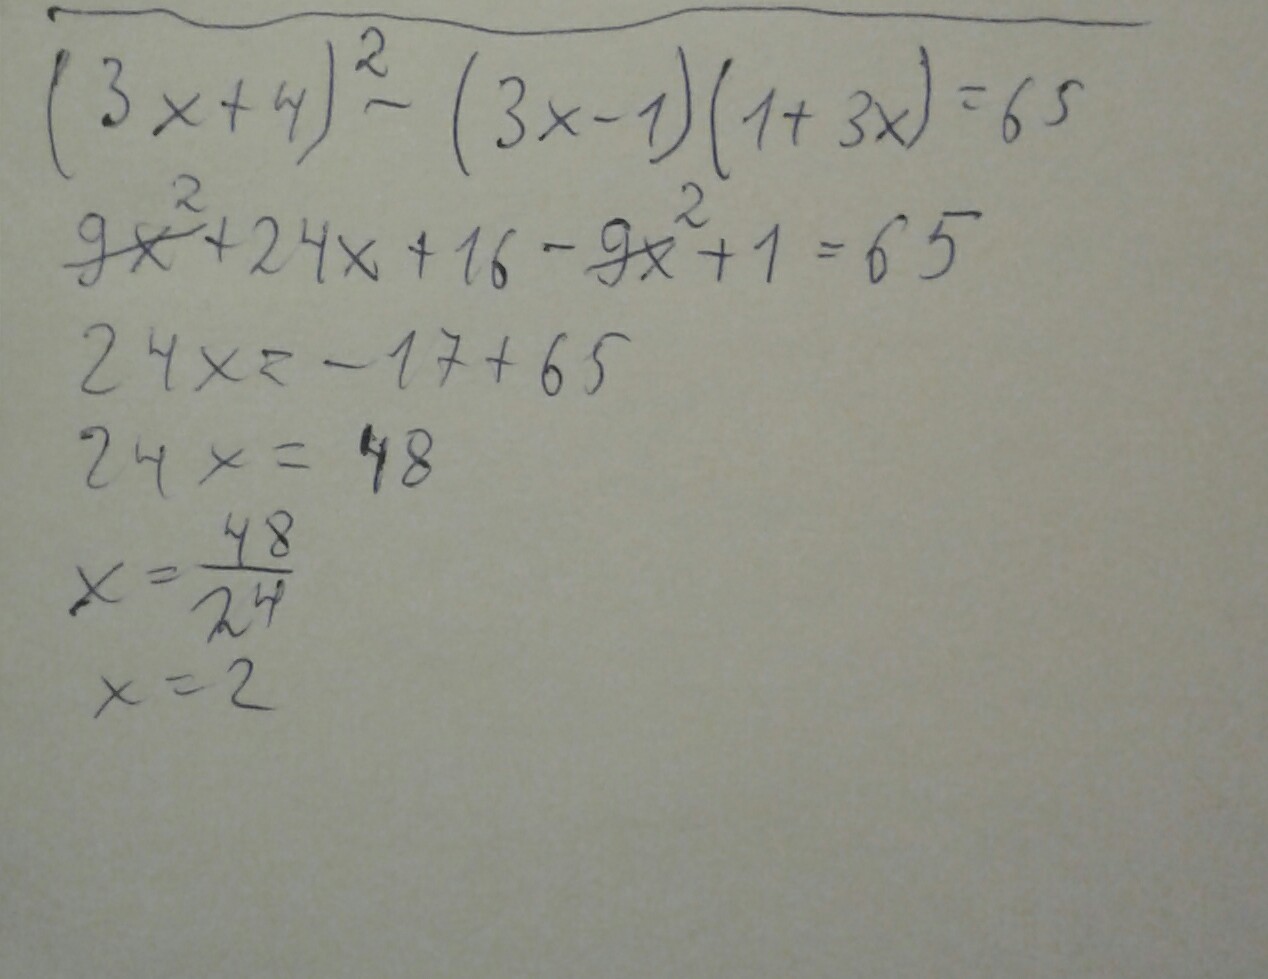 (3x+4)² - (3x-1)(1+3x) = 65
9x² + 24x + 16 - 9x² + 1 = 65
24x = -17 + 65
24x = 48
x = 48/24
x = 2